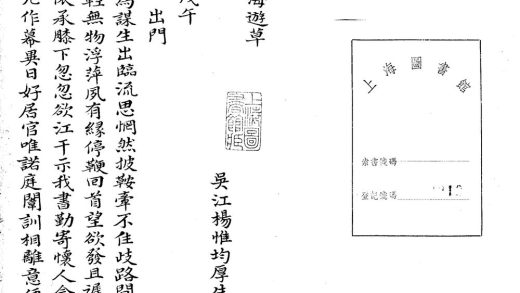 上海圖書館
索書號碼
登記號碼
海遊草
上海圖書館藏
吳江楊惟均厚生
戊午
出門
為謀生出臨流思惘然披鞍牽不住歧路
輕無物浮萍夙有緣停鞭回首望欲發且遲
依承膝下忽忽欲江干示我書勤寄懷人
允作幕異日好居官唯諾庭闈訓相離意